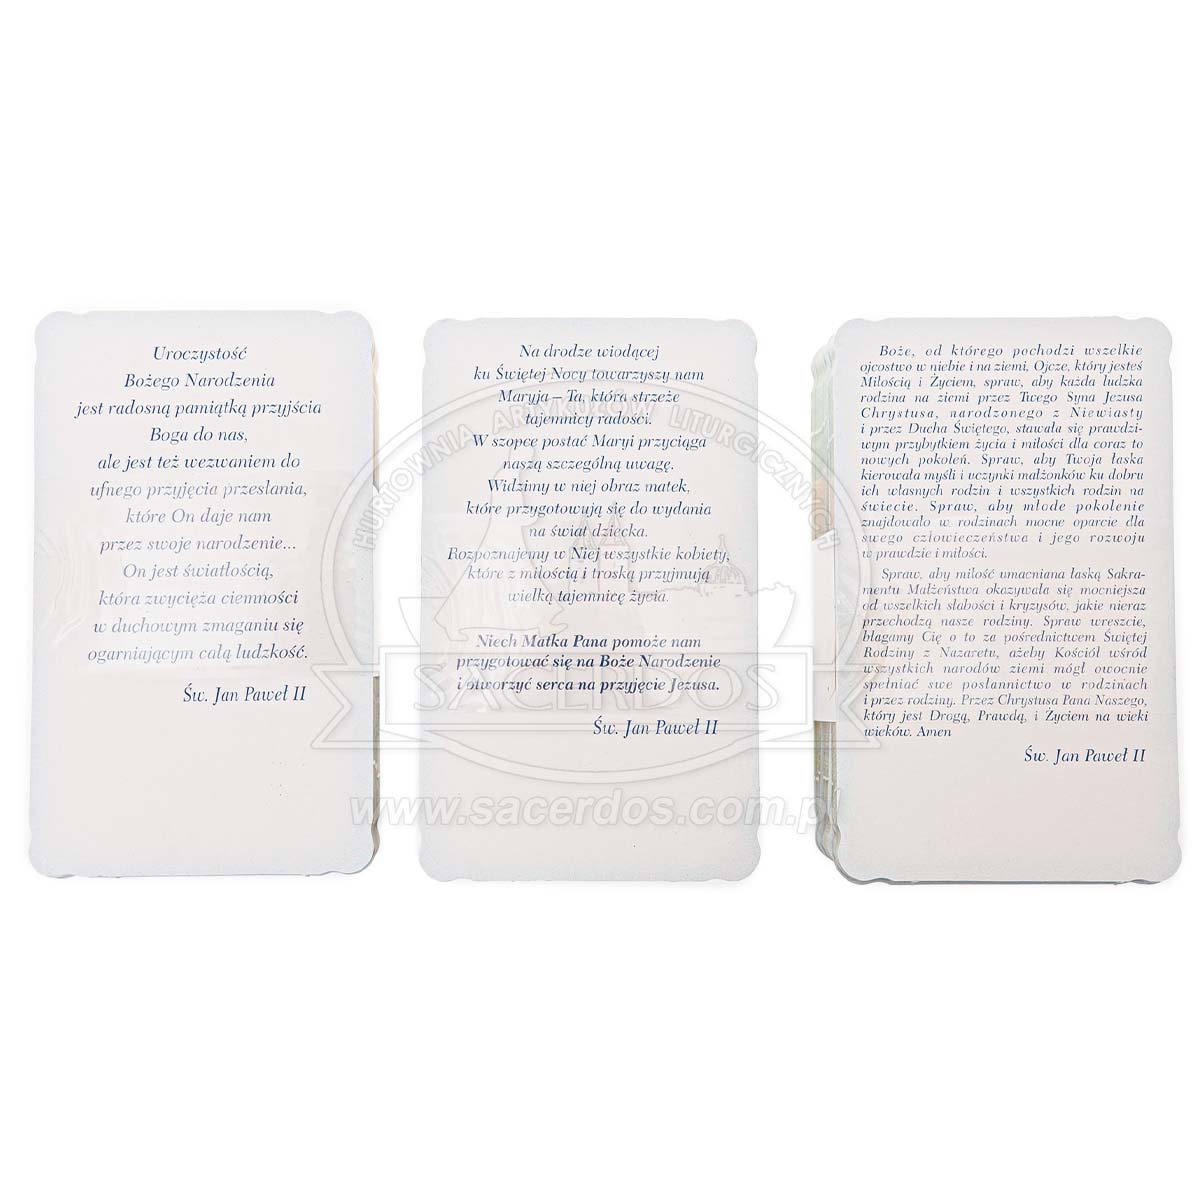 Uroczystość
Bożego Narodzenia
jest radosną pamiątką przyjścia
Boga do nas,
ale jest też wezwaniem do
ufnego przyjęcia przesłania,
które On daje nam
przez swoje narodzenie...
On jest światłością,
która zwycięża ciemności
w duchowym zmaganiu się
ogarniającym całą ludzkość.
Św. Jan Paweł II
Na drodze wiodącej
ku Świętej Nocy towarzyszy nam
Maryja – Ta, która strzeże
tajemnicy radości.
W szopce postać Maryi przyciąga
naszą szczególną uwagę.
Widzimy w niej obraz matek,
które przygotowują się do wydania
na świat dziecka.
Rozpoznajemy w Niej wszystkie kobiety,
które z miłością i troską przyjmują
wielką tajemnicę życia.
Niech Matka Pana pomoże nam
przygotować się na Boże Narodzenie
i otworzyć serca na przyjęcie Jezusa.
Św. Jan Paweł II
Boże, od którego pochodzi wszelkie
ojcostwo w niebie i na ziemi, Ojcze, który jesteś
Miłością i Życiem, spraw, aby każda ludzka
rodzina na ziemi przez Twego Syna Jezusa
Chrystusa, narodzonego z Niewiasty
i przez Ducha Świętego, stawała się prawdzi-
wym przybytkiem życia i miłości dla coraz to
nowych pokoleń. Spraw, aby Twoja łaska
kierowała myśli i uczynki małżonków ku dobru
ich własnych rodzin i wszystkich rodzin na
świecie. Spraw, aby młode pokolenie
znajdowało w rodzinach mocne oparcie dla
swego człowieczeństwa i jego rozwoju
w prawdzie i miłości.
Spraw, aby miłość umacniana łaską Sakra-
mentu Małżeństwa okazywała się mocniejsza
od wszelkich słabości i kryzysów, jakie nieraz
przechodzą nasze rodziny. Spraw wreszcie,
błagamy Cię o to za pośrednictwem Świętej
Rodziny z Nazaretu, ażeby Kościół wśród
wszystkich narodów ziemi mógł owocnie
spełniać swe posłannictwo w rodzinach
i przez rodziny. Przez Chrystusa Pana Naszego,
który jest Drogą, Prawdą, i Życiem na wieki
wieków. Amen
Św. Jan Paweł II
HURTOWNIA ARTYKUŁÓW LITURGICZNYCH
SACERDOS
www.sacerdos.com.pl